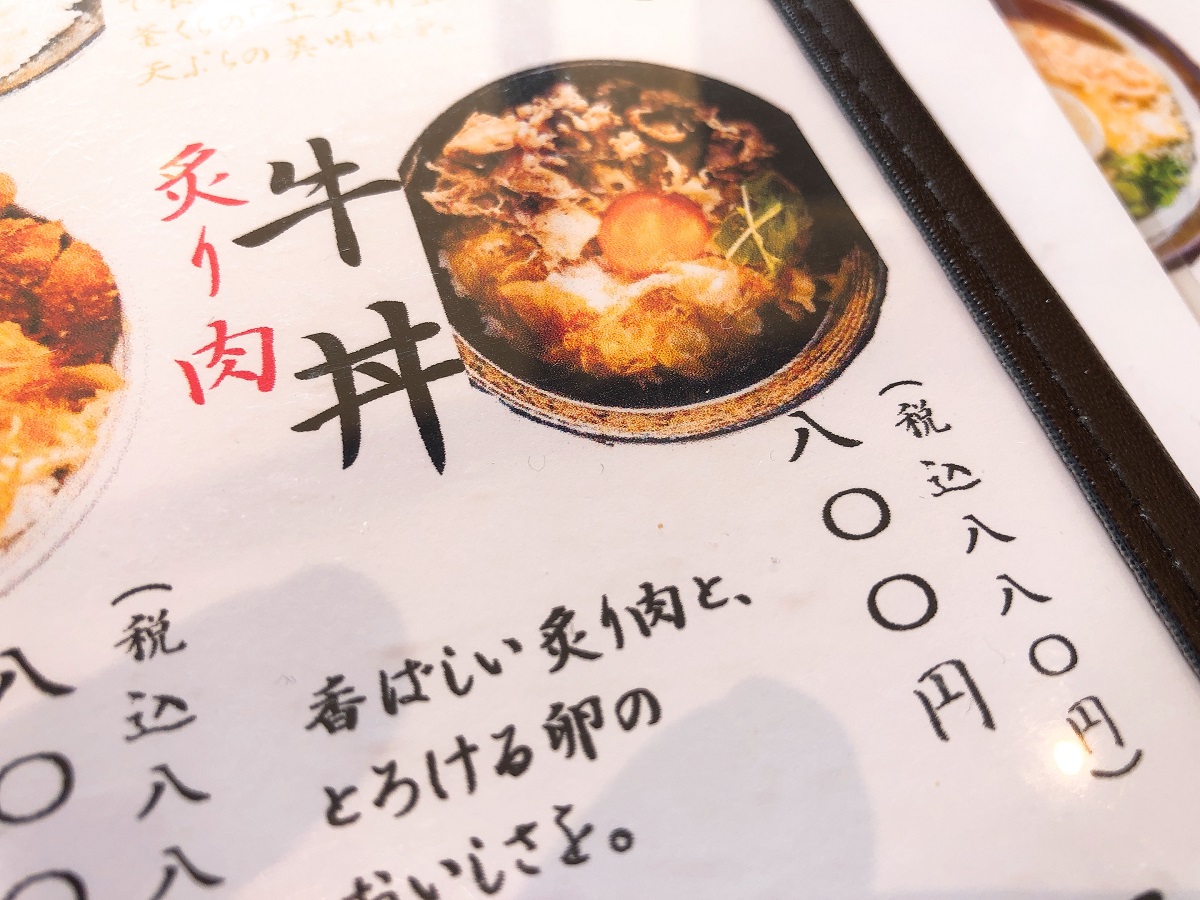 天ぷらの美味
炙り肉
牛丼
八〇〇円
(税込八八〇円)
香ばしい炙り肉と、
とろける卵の
おいしさを。
八〇〇
(税込八八